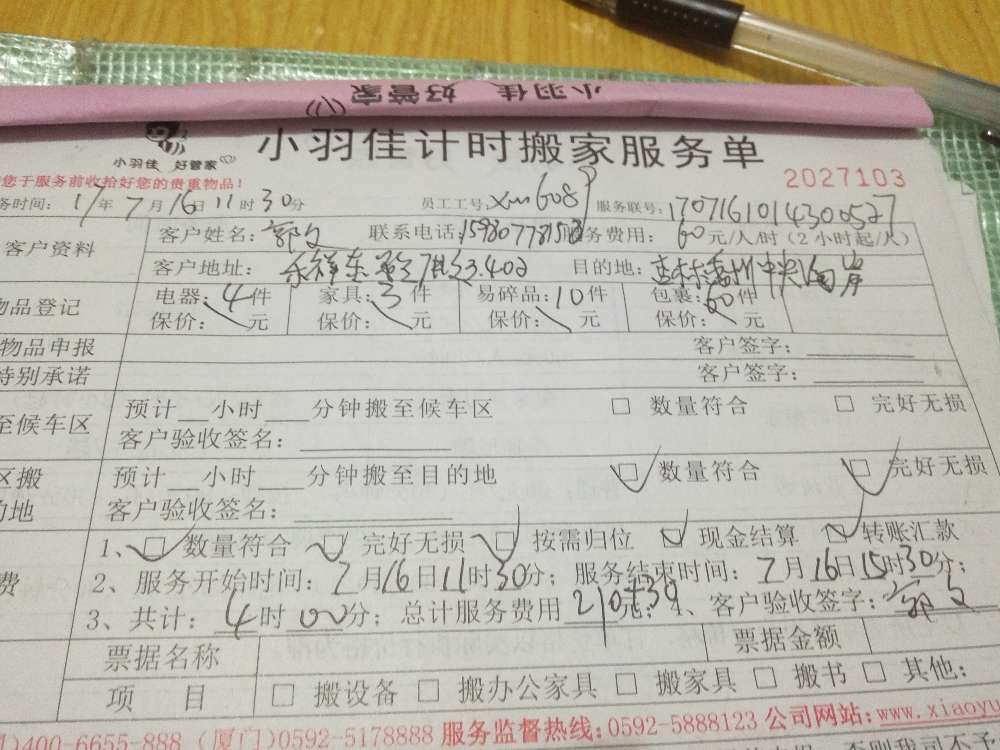 小羽佳 好管家
小羽佳 好管家
小羽佳计时搬家服务单
您于服务前收拾好您的贵重物品!
2027103
务时间: 17年7月16日11时30分 员工工号: xm608 服务联号:
客户资料
客户姓名: 郭文 联系电话: 服务费用: 60元/人/时(2小时起/人)
客户地址: 3.402 目的地:
物品登记
电器: 4件 家具: 3件 易碎品: 10件 包裹: 60件
保价: 元 保价: 元 保价: 元 保价: 元
物品申报 客户签字:
特别承诺 客户签字:
至候车区
预计 小时 分钟搬至候车区 □ 数量符合 □ 完好无损
客户验收签名:
区搬
的地
预计 小时 分钟搬至目的地 ☑ 数量符合 ☑ 完好无损
客户验收签名:
费
1、☑ 数量符合 ☑ 完好无损 ☑ 按需归位 ☑ 现金结算 ☑ 转账汇款
2、服务开始时间: 7月16日11时30分; 服务结束时间: 7月16日15时30分;
3、共计: 4时00分; 总计服务费用 元; 4、客户验收签字: 郭文
票据名称 票据金额
项 目 □ 搬设备 □ 搬办公家具 □ 搬家具 □ 搬书 □ 其他:
)400-6655-888 (厦门)0592-5178888 服务监督热线:0592-5888123 公司网站:www.xiaoyu